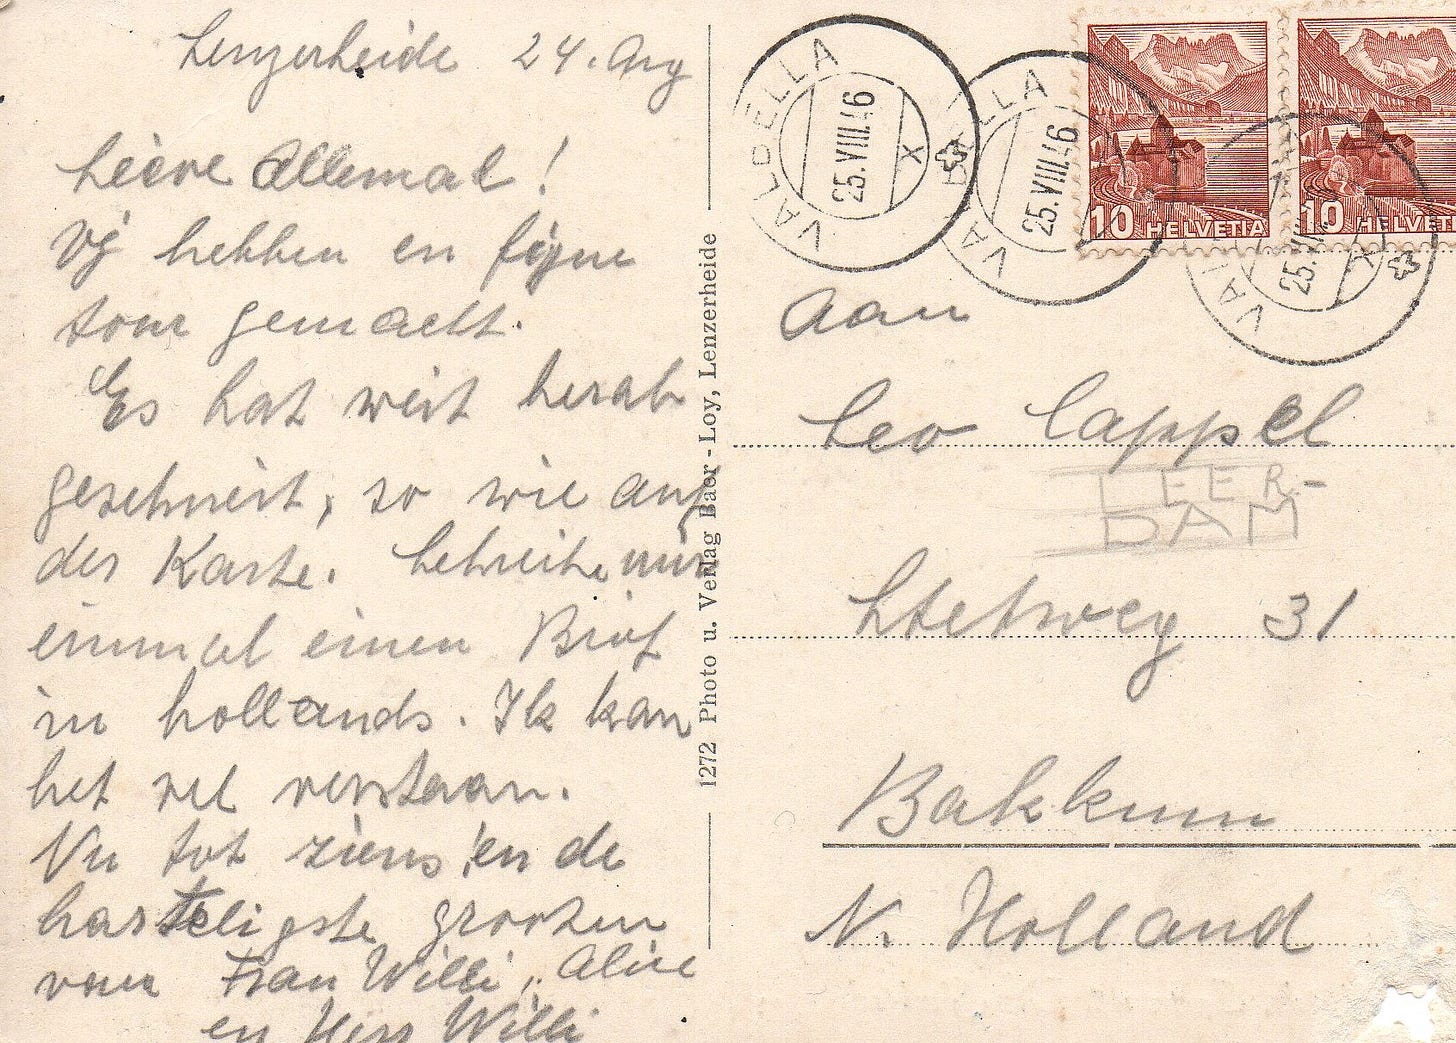 Lenzerheide 24. Aug
Lieve Allemal!
Wij hebben en feyne
tour gemackt.
Es hat weit herab
geschneit, so wie auf
der Karte. Schreibe mir
einmal einen Brief
in hollands. Ik kan
het vel verstaan.
Nu tot ziens! en de
harteligste grooten
von Frau Willi, Alice
en Herr Willi
1272 Photo u. Verlag Baer-Loy, Lenzerheide
VALBELLA
25.VIII.46
X
VALBELLA
25.VIII.46
VAL
25.VIII
X
10 HELVETIA
10 HELVETI
aan
Leo Cappel
LEER-
DAM
Stetweg 31
Bakkum
N. Holland